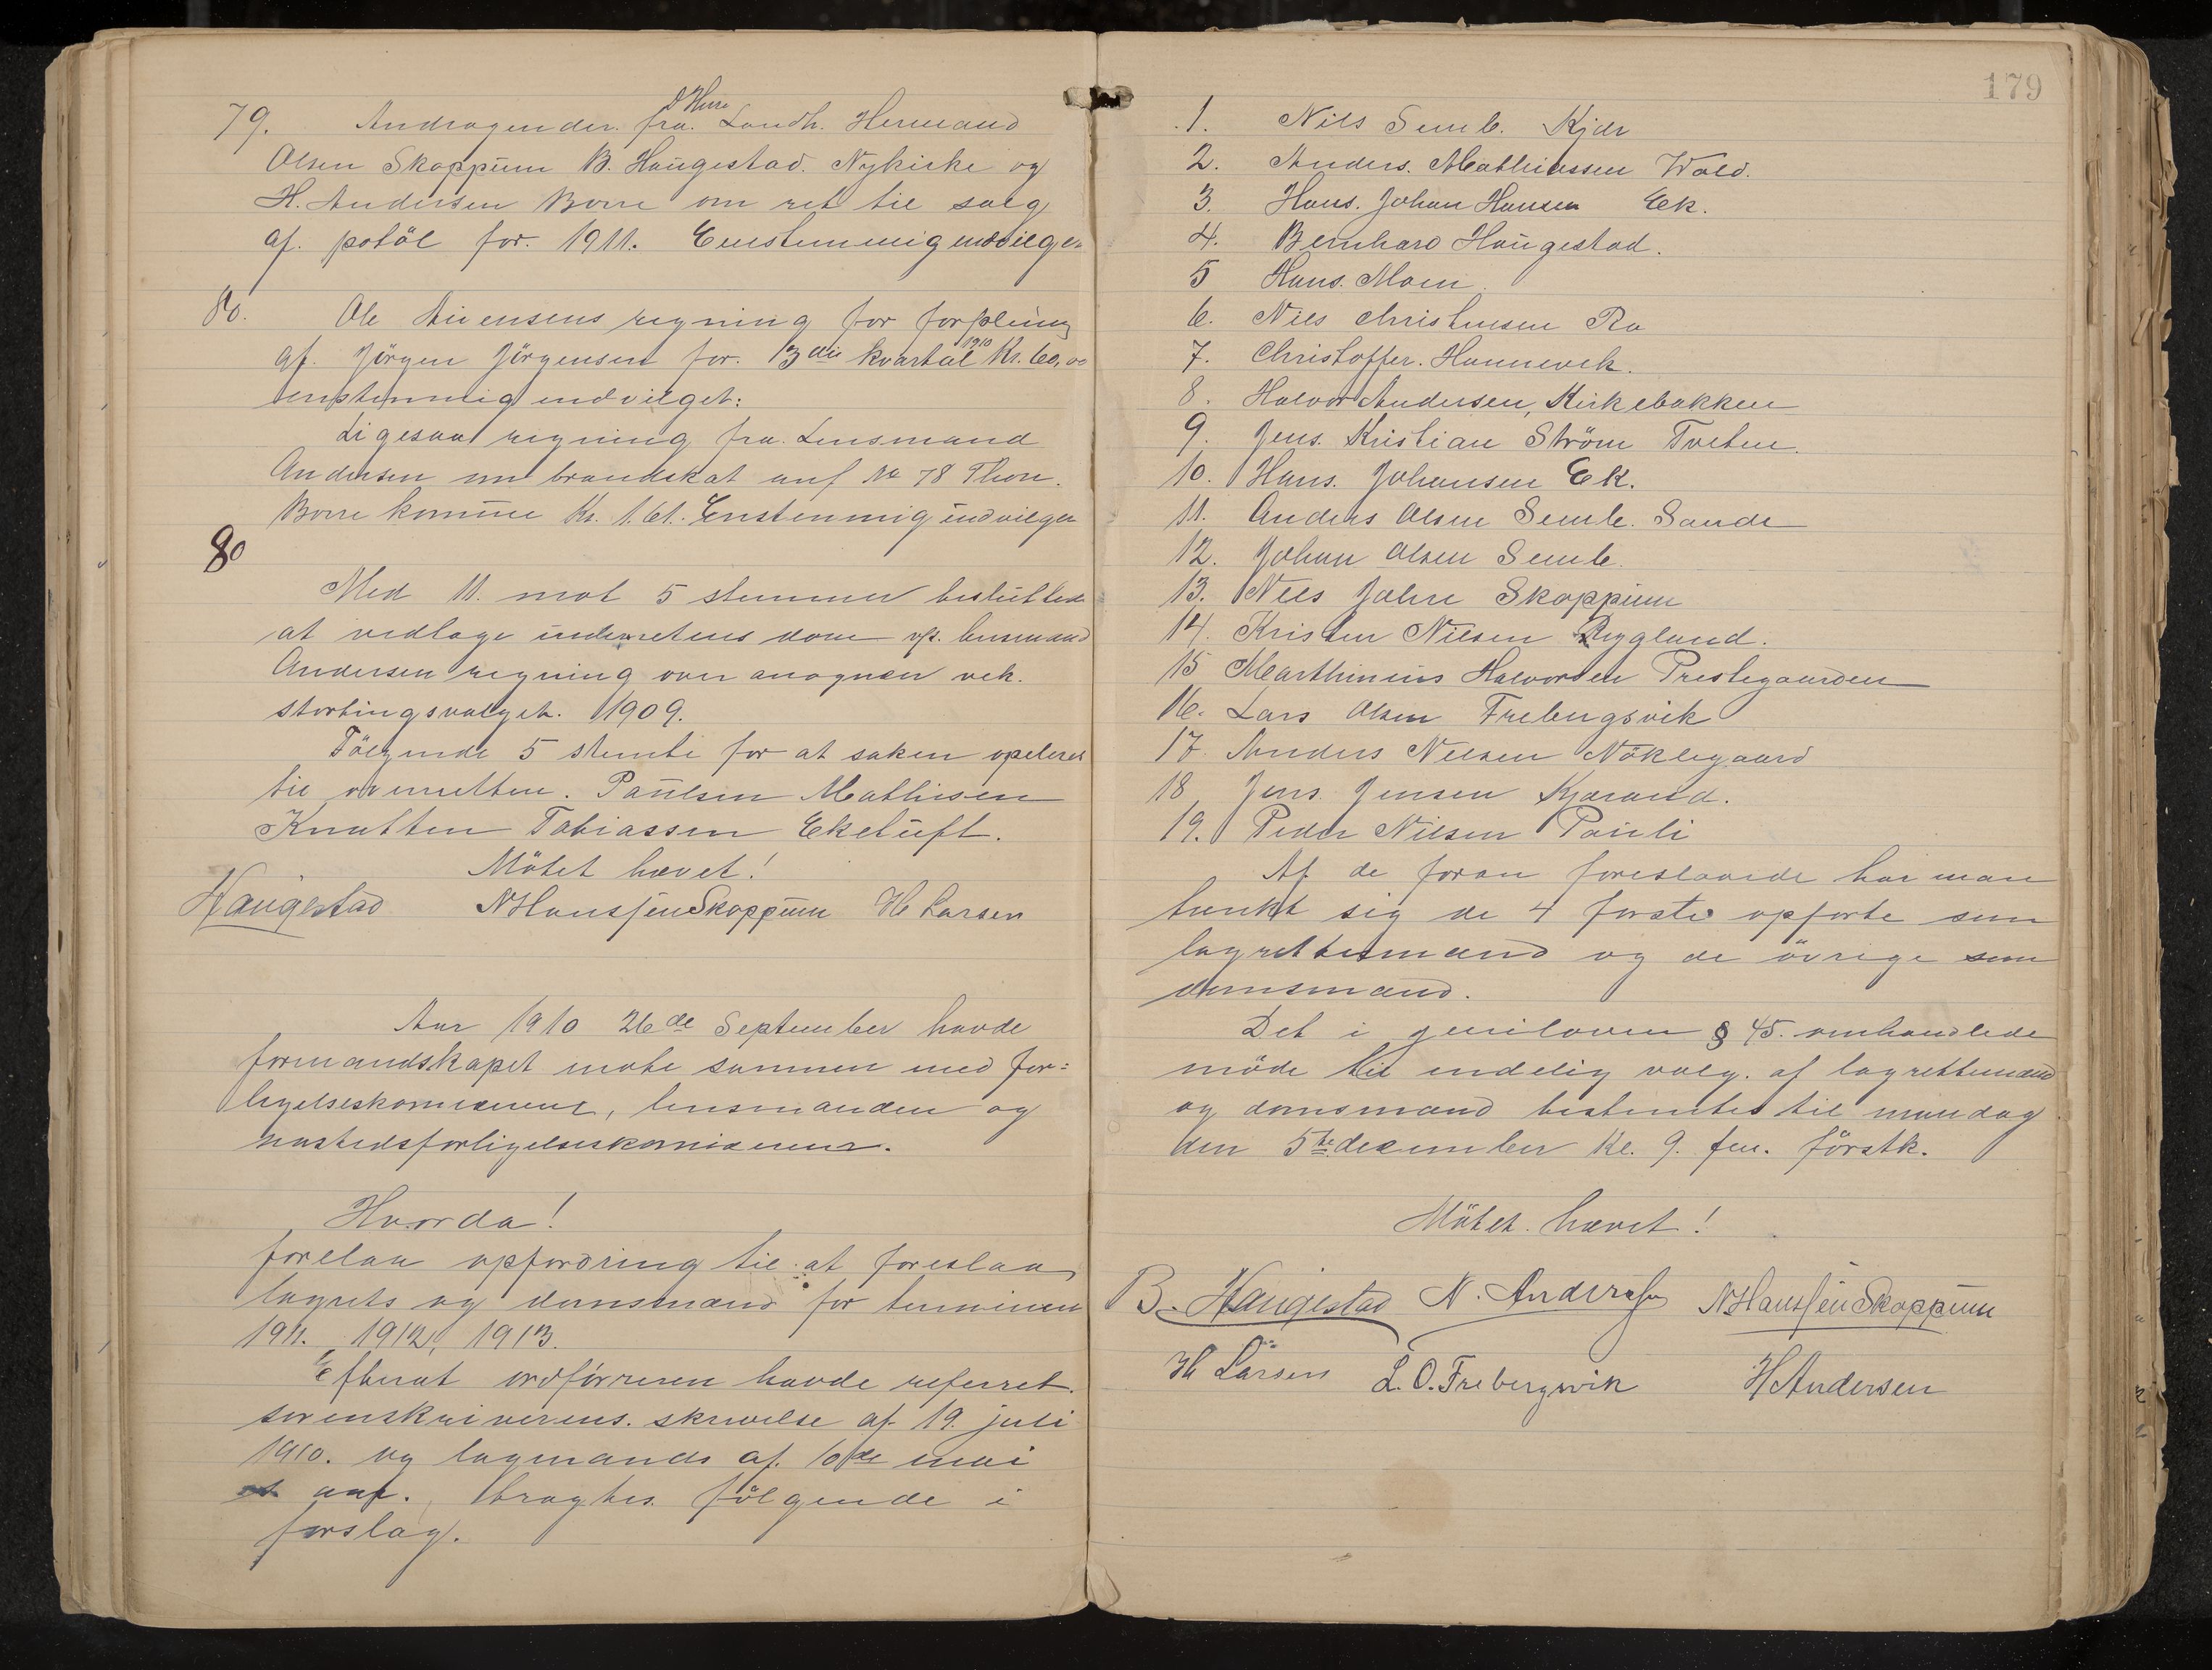 79. Andragender fra D'Hrr. Landh. Hermand
Olsen Skoppum B. Haugestad. Nykirke og
H. Andersen Borre om ret til salg
af. potöl for. 1911. Enstemmig indvilget
80. Ole Aivensens regning for forpleining
af. Jörgen Jörgensen for. 3die kvartal 1910 Kr. 60,00
enstemmig indvilget:
Ligesaa regning fra. Lensmand
Andersen om brandskat auf No 78 Thon.
Borre komune Kr. 1.61. Enstemmig indvilget
80
Med 11. mot 5 stemmer besluttedes
at vedtage underretens dom vf. lensmand
Andersen regning over anogner vek.
stortingsvalget. 1909.
Fölgende 5 stemte for at saken apeleres
til overretten. Paulsen Mathisen
Knutten Tobiassen Ekeluft.
Mötet hævet!
Haugestad NHansenSkoppum H Larsen
Aar 1910 26de September havde
formandskapet möte sammen med for=
ligelseskomiserene, lensmanden og
nastedsforligelseskomiserene.
Hvorda!
forelaa opfordring til at foreslaa
lagrets og domsmænd for terminen
1911. 1912, 1913.
Efterat ordförreren havde referret.
sorenskriverens. skrivelse af 19. juli
1910. og lagmands af. 10de mai
aaf. bragtes fölgende i
forslag.
179
1. Nils Semb. Kjær
2. Anders. Mathiassen Wold.
3. Hans. Johan Hansen Ek.
4. Bernhard Haugestad.
5 Hans. Moen.
6. Niels Christensen Ra
7. Christoffer. Hannevek.
8. Halvor Andersen, Kirkebakken
9. Jens. Kristian Ström Tveten.
10. Hans. Johansen Ek.
11. Anders Olsen Semb. Sande
12. Johan Olsen Semb.
13. Nils Jahre Skoppum
14. Kristen Nilsen Rygland.
15 Marthinius Halvorsen Prestegaarden
16. Lars Olsen Frebergsvik
17. Anders Nilsen Nöklegaard
18 Jens. Jensen Kjærand.
19. Peder Nilsen Pauli
Af de foran foreslaaede har man
tænkt sig de 4 første opførte som
lagrettesmænd og de övrige som
domsmænd.
Det i juriloven § 45. omhandlede
möde til endelig valg. af lagrettemænd
og domsmænd bestemtes til mandag
den 5te december Kl. 9. fm. förstk.
Mötet. hævet!
B. Haugestad N. Andersen NHansenSkoppum
H Larsen L. O. Frebergsvik HAndersen